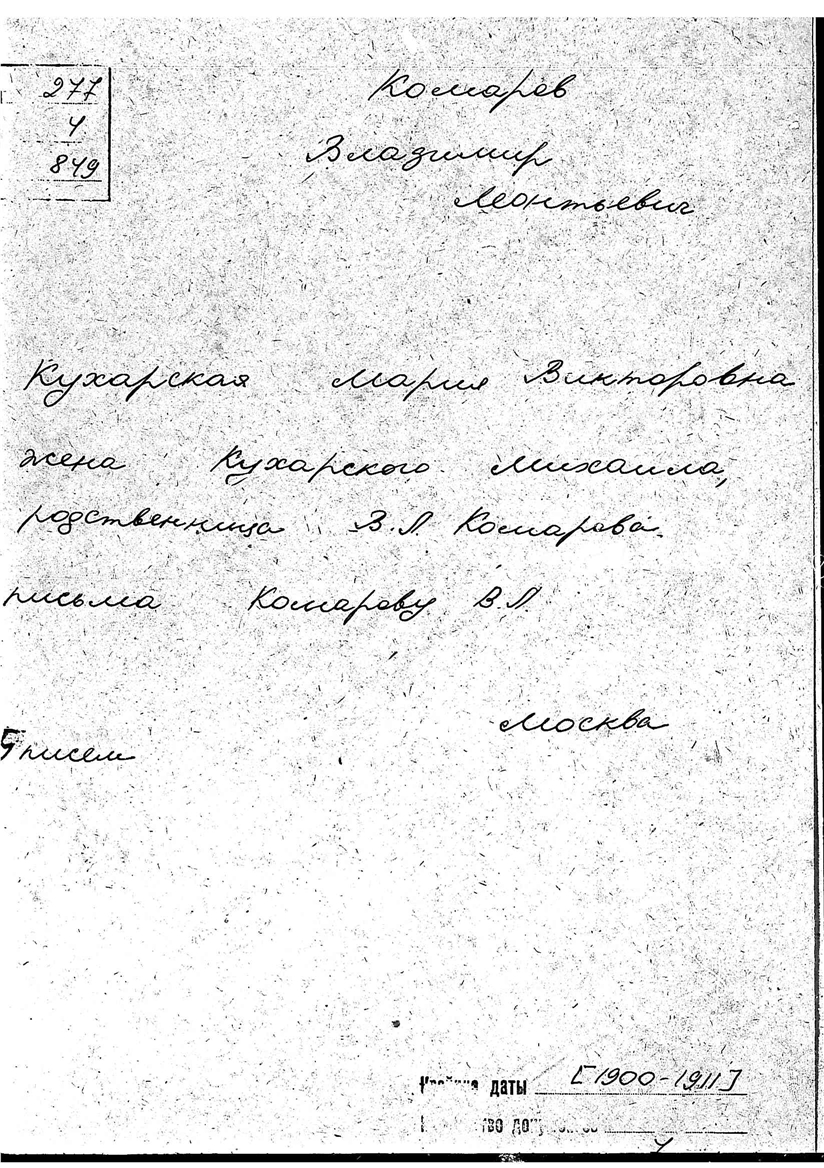 277
4
849
Комаров
Владимир
Леонтьевич
Кухарская Мария Викторовна
жена Кухарского Михаила,
родственница В.Л. Комарова.
письма Комарову В.Л.
Москва
5 писем
Крайние даты [1900-1911]